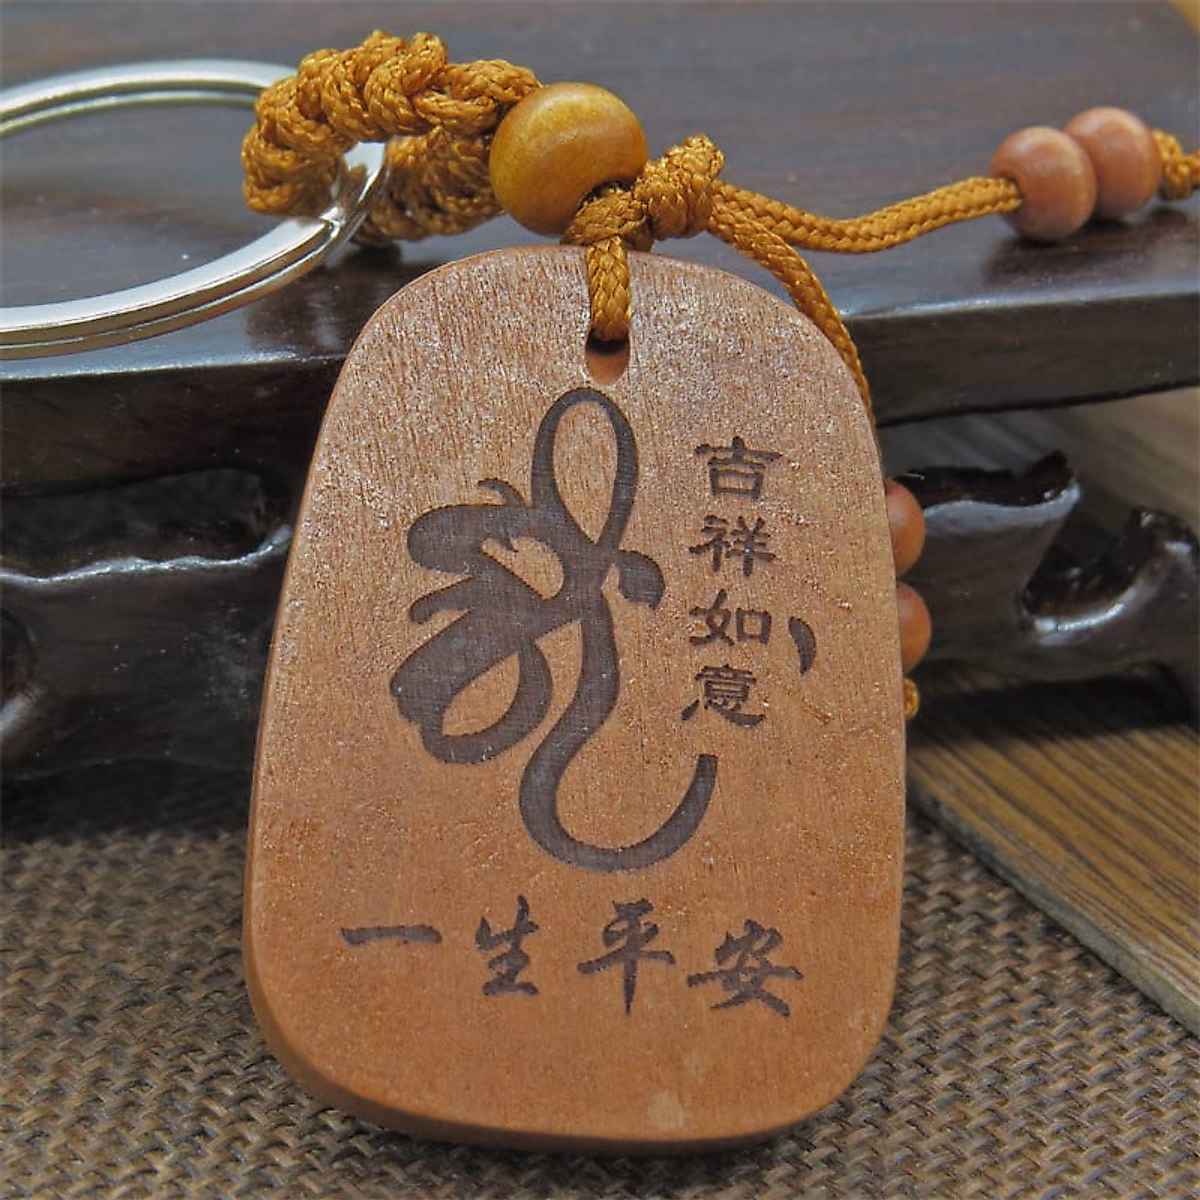 吉祥如意
一生平安